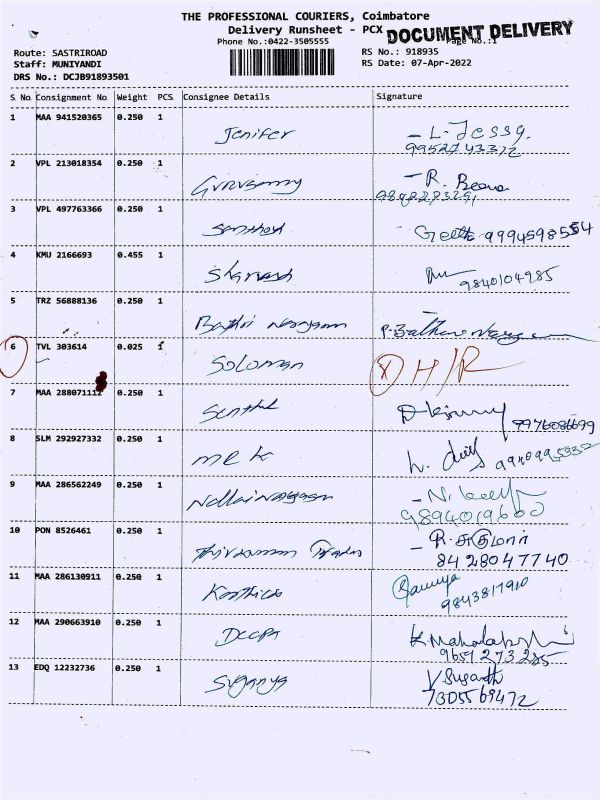 THE PROFESSIONAL COURIERS, Coimbatore
Delivery Runsheet - PCX
DOCUMENT DELIVERY
Phone No.:0422-3505555
Page No.:1
Route: SASTRIROAD
RS No.: 918935
Staff: MUNIYANDI
RS Date: 07-Apr-2022
DRS No.: DCJB91893501
S No Consignment No Weight PCS Consignee Details Signature
1 MAA 941520365 0.250 1 Jenifer - L. Jessy.
2 VPL 213018354 0.250 1 - R.
3 VPL 497763366 0.250 1 Santhosh Geetha 9994598554
4 KMU 2166693 0.455 1
9840104985
5 TRZ 56888136 0.250 1 Bathri Narayanan
6 TVL 303614 0.025 1 Soloman X H/R
7 MAA 288071112 0.250 1 Senthil
8 SLM 292927332 0.250 1
9 MAA 286562249 0.250 1 Nellai Narayanan - N.
9894019600
10 PON 8526461 0.250 1 - R. சுகுமார்
84 28047740
11 MAA 286130911 0.250 1 Karthick Ramya
9843817910
12 MAA 290663910 0.250 1 Deepa K Mahalakshmi
9659 273 285
13 EDQ 12232736 0.250 1 Suganya V Suganth
7305569472